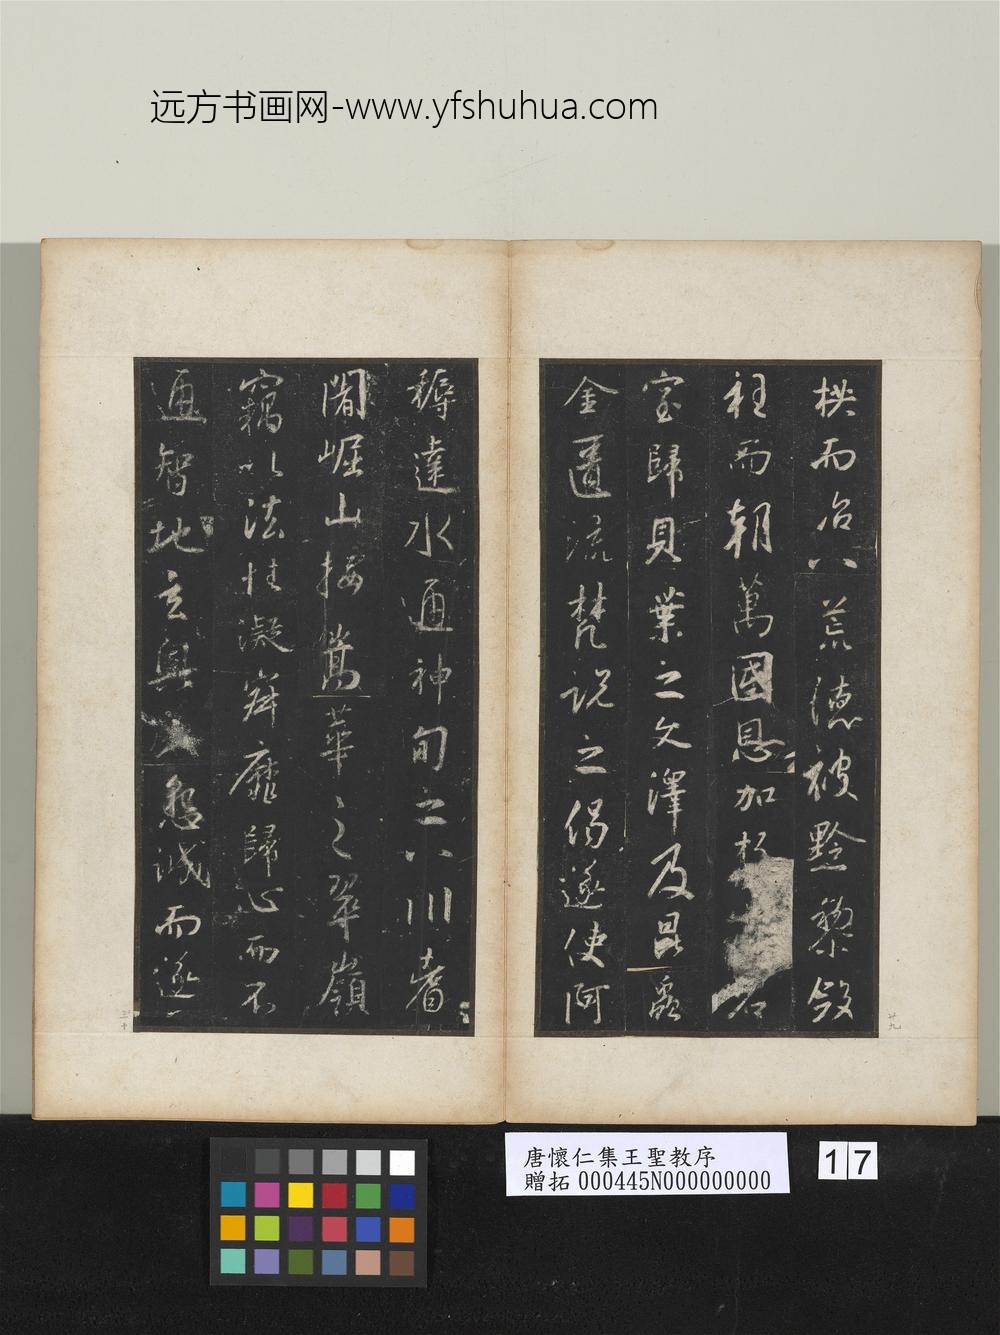 远方书画网-www.yfshuhua.com
拱而治八荒德被黔黎斂
衽而朝萬國恩加朽石
室歸貝葉之文澤及昆蟲
金匱流梵說之偈遂使阿
廿九
耨達水通神甸之八川耆
闍崛山接嵩華之翠嶺
竊以法性凝寂靡歸心而不
通智地玄奧懇誠而遂
三十
唐懷仁集王聖教序
贈拓 000445N000000000
17